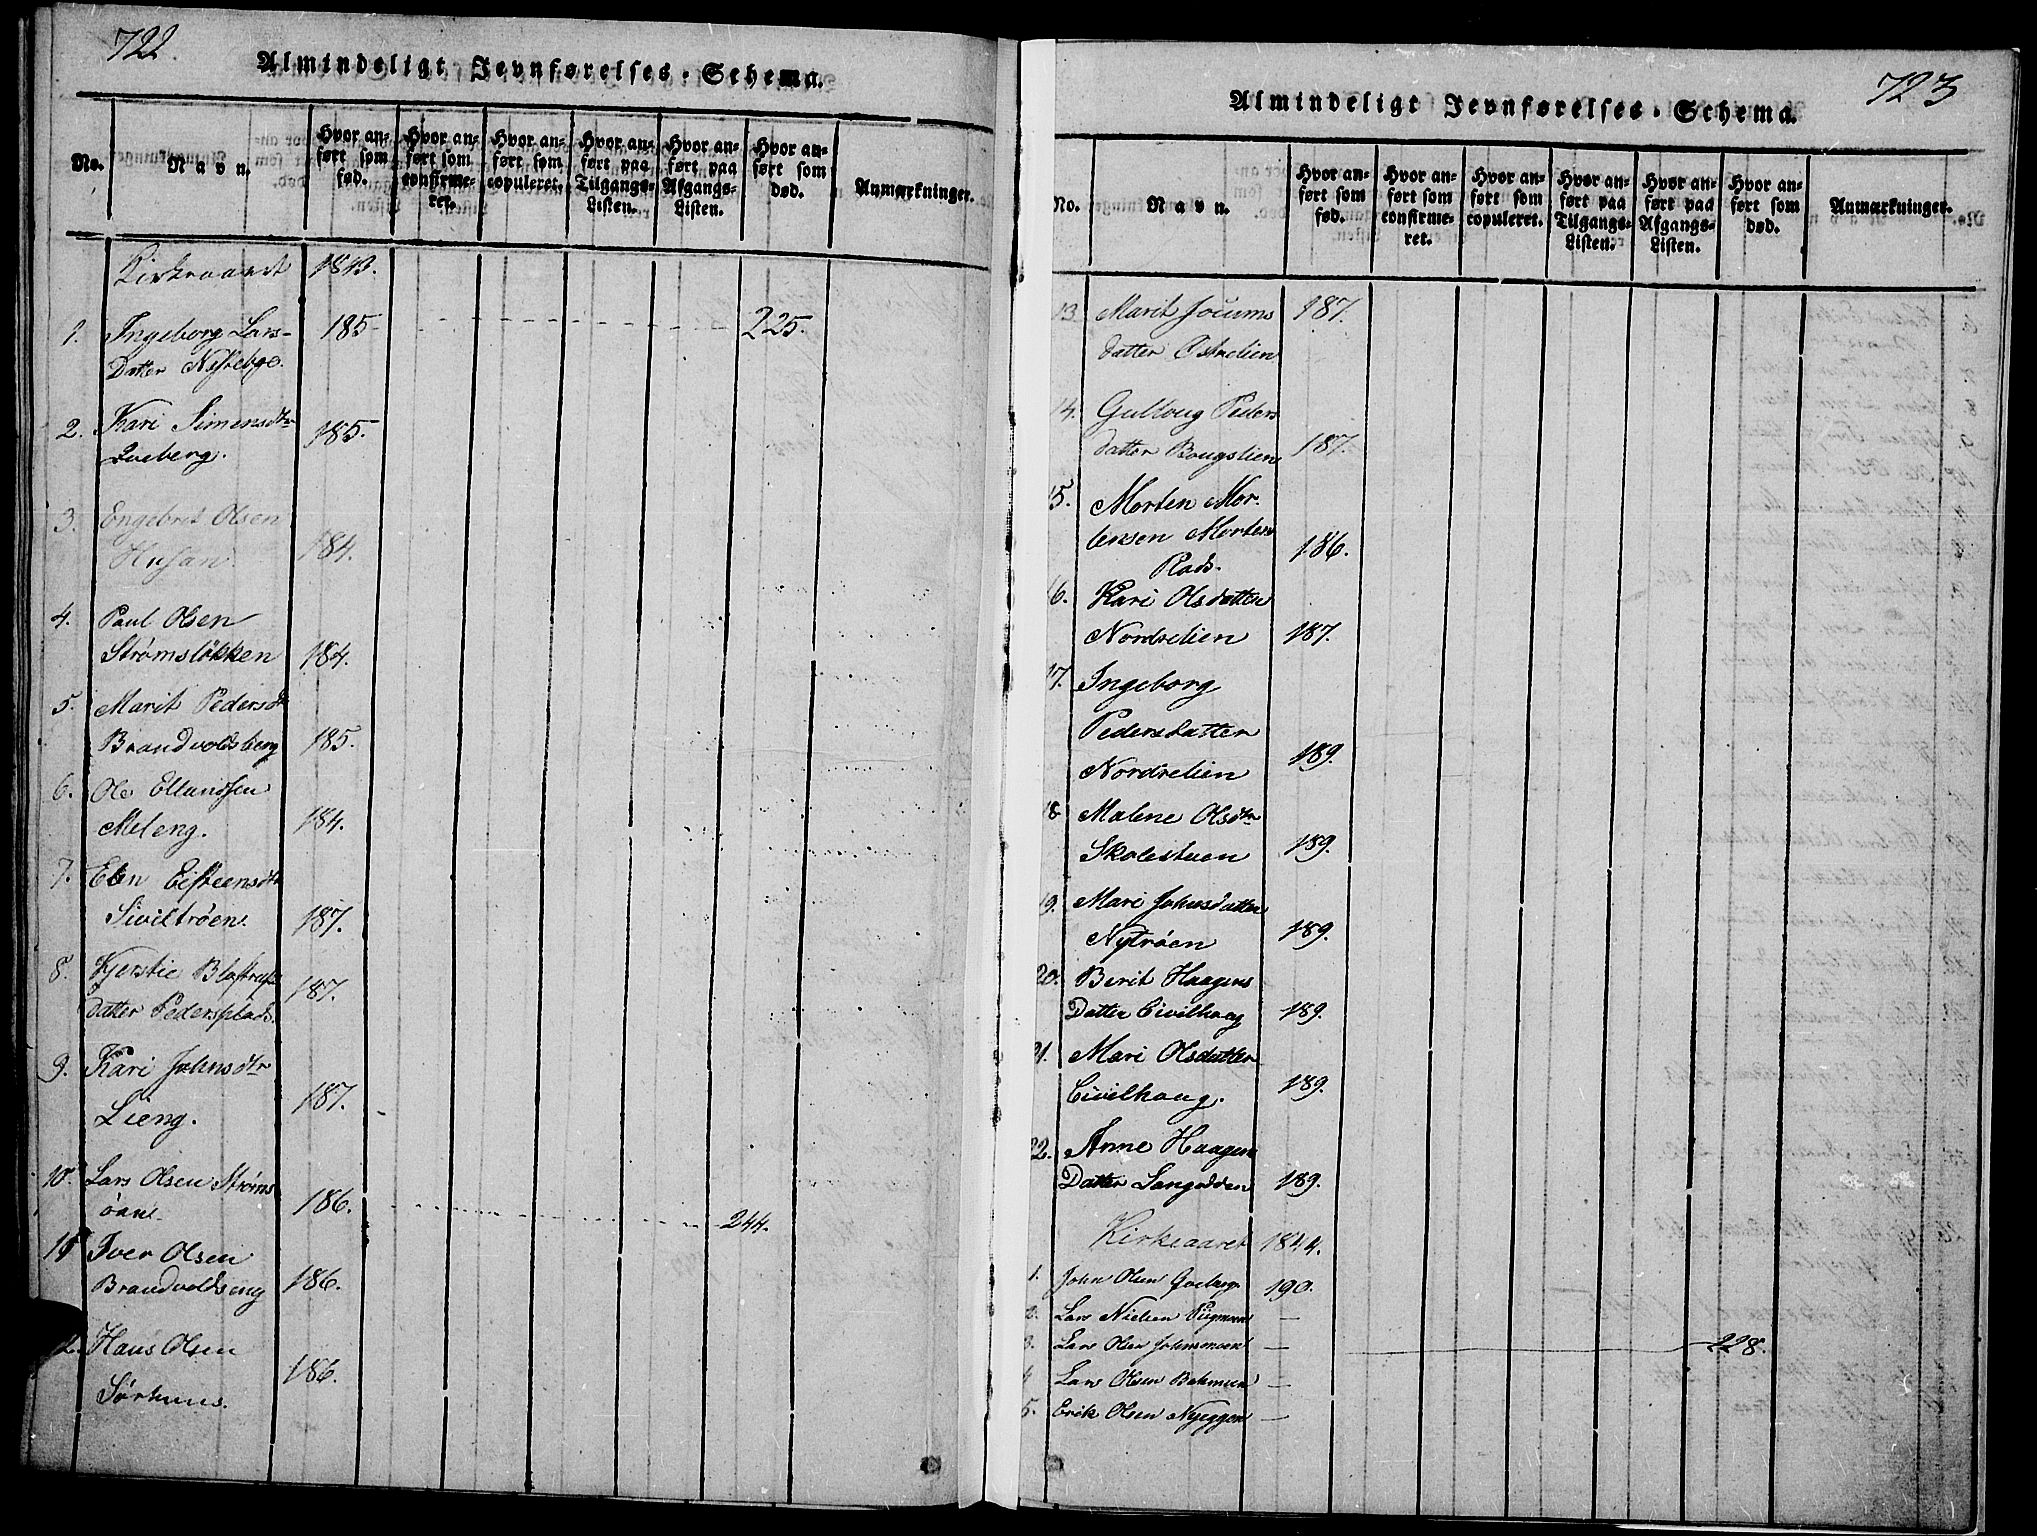 722.
Almindeligt Jevnførelses-Schema.
No. Navn. Hvor anført som fød. Hvor anført som confirmeret. Hvor anført som copuleret. Hvor anført paa Tilgangs-Listen. Hvor anført paa Afgangs-Listen. Hvor anført som død. Anmærkninger.
Kirkeaaret 1843.
1. Ingeborg Lars- 185 225.
Datter
2. Kari Simensdtr 185.
Qveberg.
3. Engebret Olsen
Husan. 184.
4. Paul Olsen
Strømsløkken 184.
5. Marit Pedersdtr
Brandvoldsberg 185.
6. Ole Ellandsen
Meleng. 184.
7. Elen Eisteensdtr
Siviltrøen. 187.
8. Kjerstie 187.
datter Pedersplads.
9. Kari Johnsdtr
Lieng. 187.
10. Lars Olsen Strøms
øen 186. 244.
11 Iver Olsen
Brandvoldseng 186.
12. Hans Olsen
Sørhuus. 186.
723
Almindeligt Jevnførelses-Schema.
No. Navn. Hvor anført som fød. Hvor anført som confirmeret. Hvor anført som copuleret. Hvor anført paa Tilgangs-Listen. Hvor anført paa Afgangs-Listen. Hvor anført som død. Anmærkninger.
13 Marit Jocums 187.
datter Østrelien
14. Gulloug Peders
datter Bougslien 187.
15. Morten Mor-
tensen Mortens 186.
Plads.
16. Kari Olsdatter
Nordrelien 187.
17. Ingeborg
Pedersdatter
Nordrelien 189.
18 Malene Olsdtr
Skolestuen 189.
19. Mari Johnsdatter
Nytrøen 189.
20. Berit Haagens
Datter Civilhaug 189.
21. Mari Olsdatter
Civilhaug. 189.
22. Anne Haagens
Datter Langodden 189.
Kirkeaaret 1844.
1. John Olsen Qveberg 190.
2. Lars Nielsen —
3. Lars Olsen Johnsmoen — 228.
4 Lars Olsen Bakmoen —
5. Erik Olsen Nyeggen —